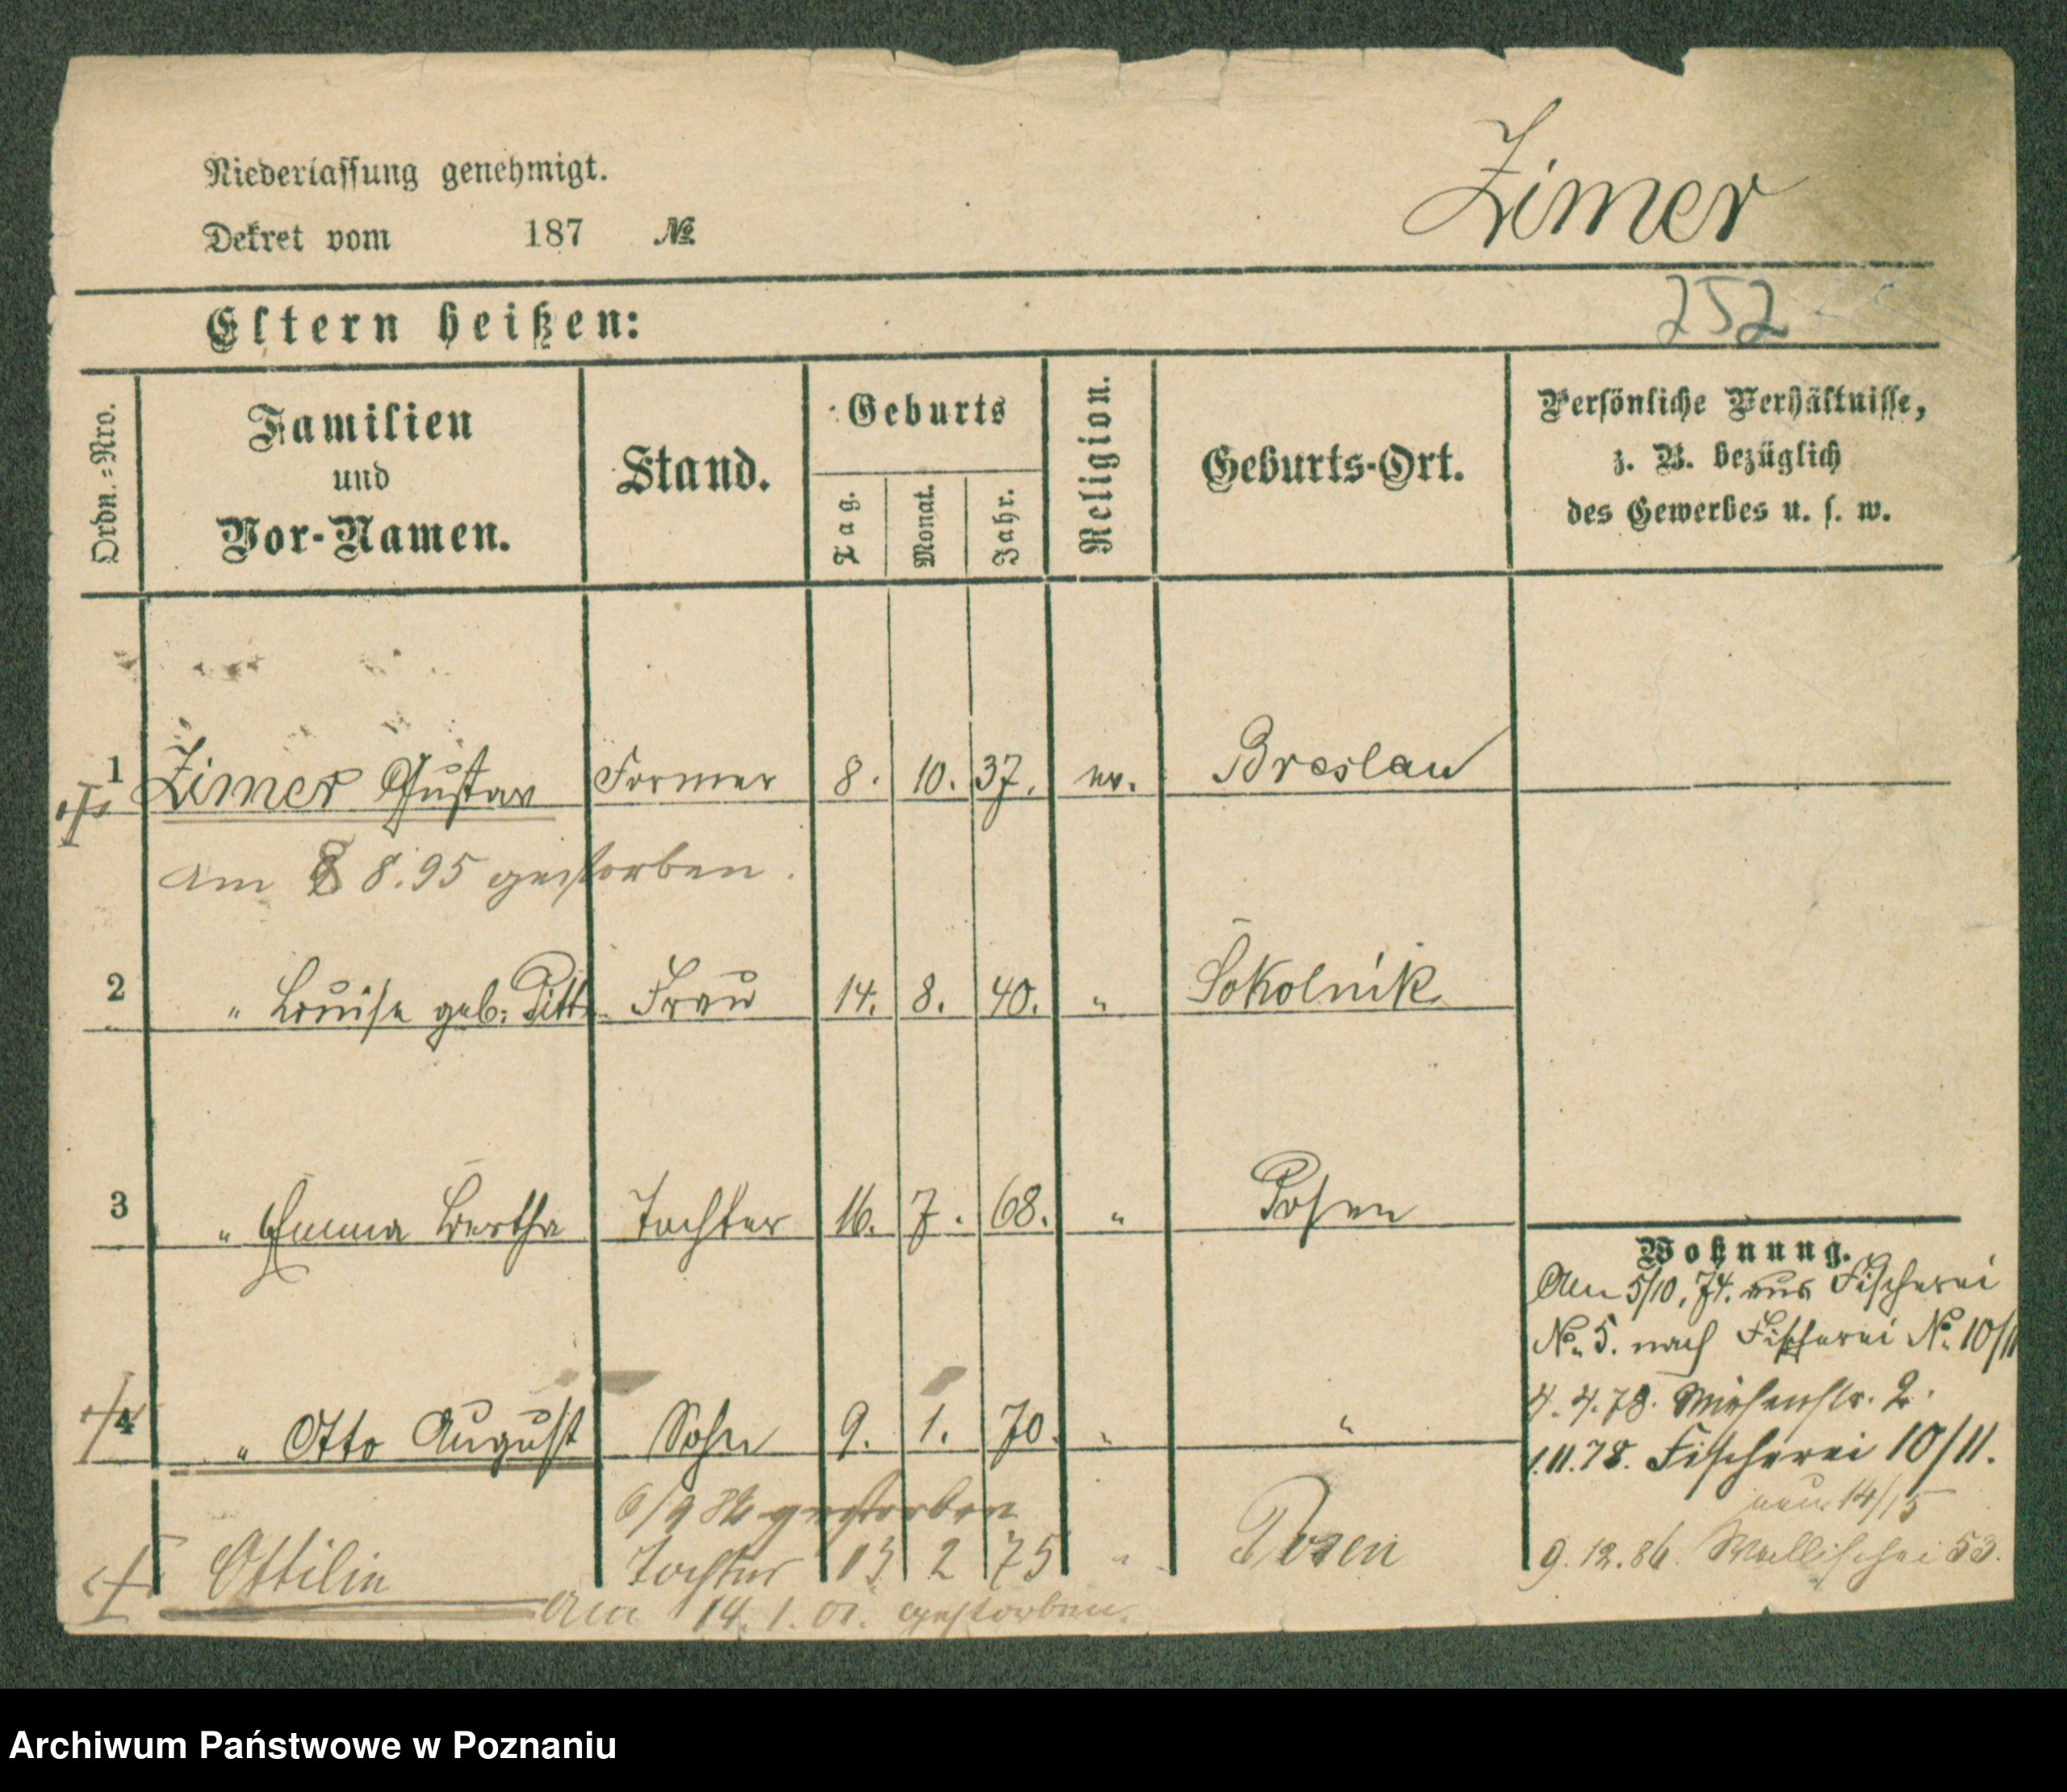 Zimer
Niederlassung genehmigt.
Dekret vom 187 №
Eltern heißen:
252
Ordn.=Nro.
Familien
und
Vor-Namen.
Stand.
Geburts
Tag.
Monat.
Jahr.
Religion.
Geburts-Ort.
Persönliche Verhältnisse,
z. B. bezüglich
des Gewerbes u. s. w.
1 Zimer Gustav Former 8. 10. 37. ev. Breslau
am 8.95 gestorben.
2 " Louise geb: Frau 14. 8. 40. " Sokolnik
3 " Emma Bertha Tochter 16. 7. 68. " Posen
4 " Otto August Sohn 9. 1. 70. " "
6/9 gestorben
Ottilie Tochter 13 2 75 " Posen
Am 14. 1. 01. gestorben.
Wohnung.
Am 5/10. 74. aus Fischerei
No. 5. nach Fischerei No. 10/11
4. 4. 78. Wiesenstr. 2.
1.11.78. Fischerei 10/11.
neu 14/15
9.12.86. Wallischei 53.
Archiwum Państwowe w Poznaniu